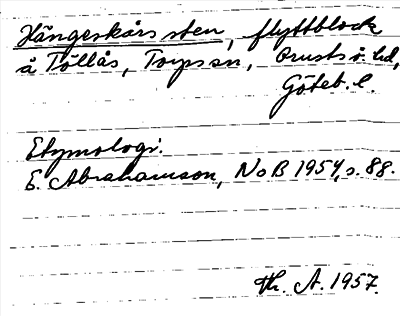 Hängeskärs sten, flyttblock
å Tollås, Torps sn, Orusts ö. hd,
Göteb. l.
Etymologi.
E. Abrahamson, NoB 1954, s. 88.
Th. A. 1957.